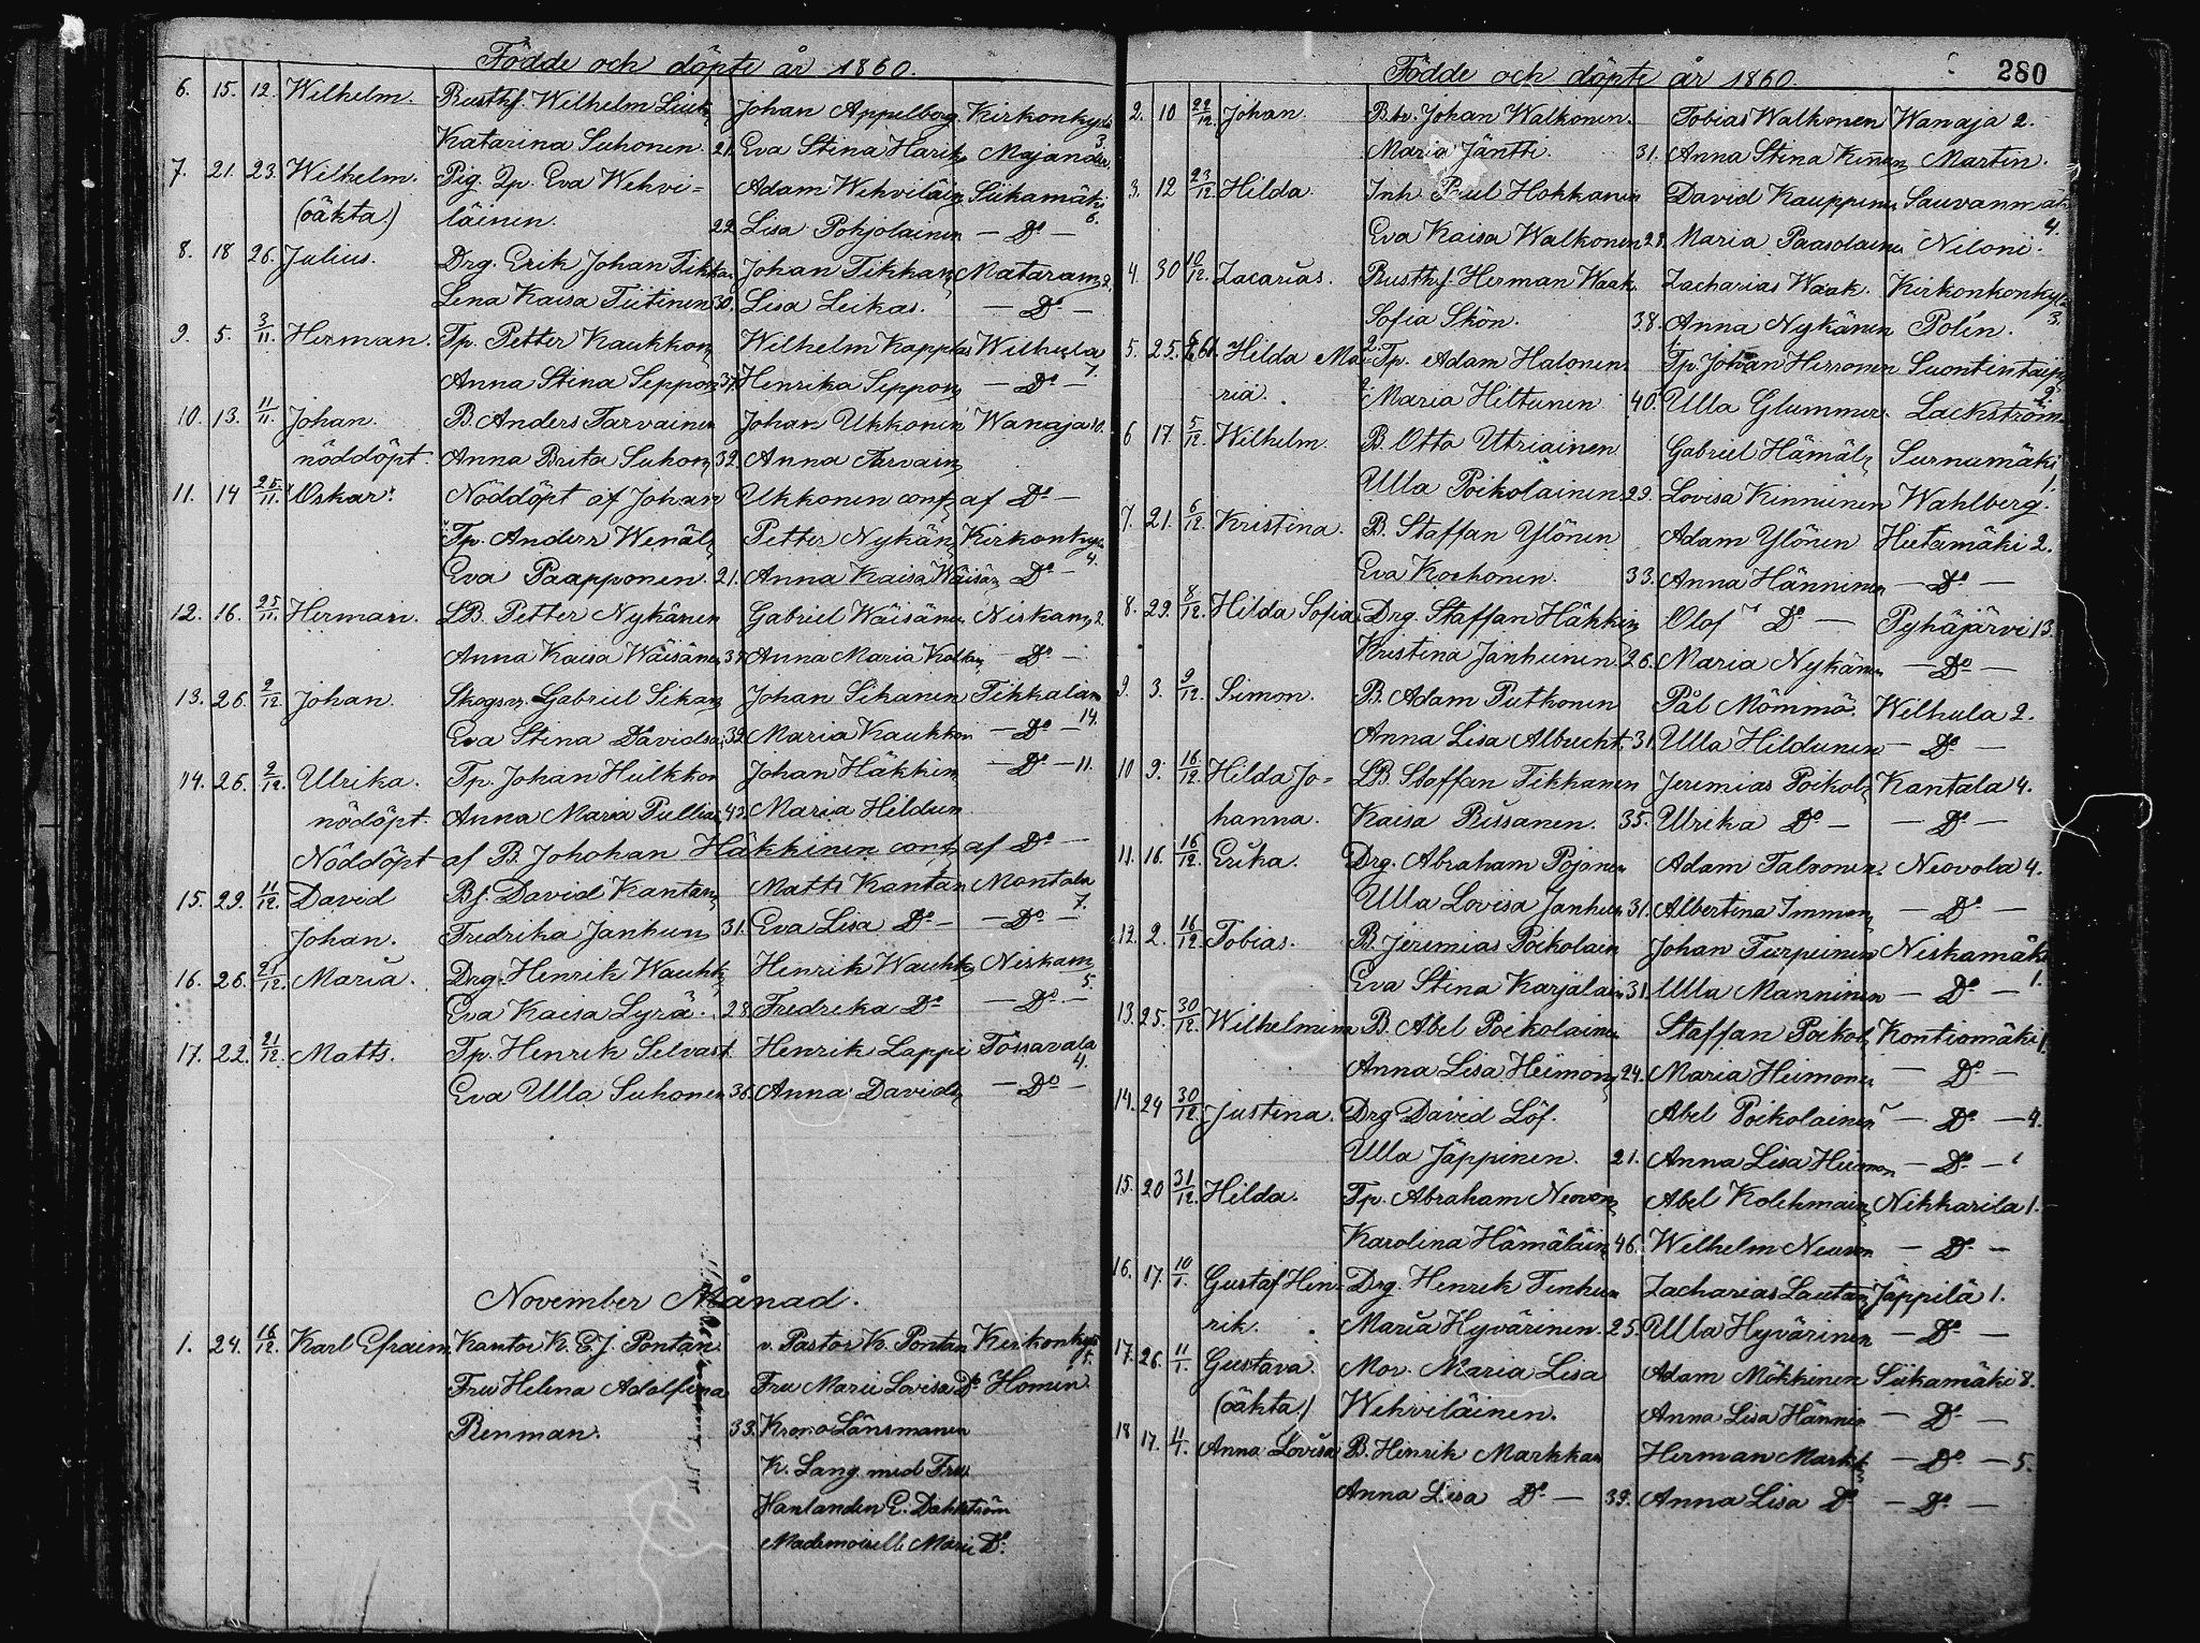 Födde och döpte år 1860.
6. 15. 12. Wilhelm. Rusthf. Wilhelm Johan Appelberg Kirkonkylä 3.
Katarina Suhonen. 21. Eva Stina Harik Majander.
7. 21. 23. Wilhelm. Pig. Qp. Eva Wehvi= Adam Wehviläin Siikamäki 6.
(oäkta) läinen. 22. Lisa Pohjolainen — Do —
8. 18 26. Julius. Drg. Erik Johan Tikka Johan Tikkan Mataram 2.
Lena Kaisa Tiitinen 30. Lisa Leikas. — Do —
9. 5. 3/11. Herman. Tp. Petter Kaukkon Wilhelm Kapplas Wilhula 7.
Anna Stina Seppon 37. Henrika Seppon — Do —
10. 13. 11/11. Johan. B. Anders Tarvainen Johan Ukkonen Wanaja 10.
nöddöpt. Anna Brita Suhon 32. Anna Tarvain
11. 14 25/11. "Oskar". Nöddöpt af Johan Ukkonen conf. af Do —
Tp. Anders Wenäl Petter Nykän Kirkonkyl 4.
Eva Paapponen. 21. Anna Kaisa Wäisän Do —
12. 16. 25/11. Herman. LB. Petter Nykänen Gabriel Wäisänen Niskam 2.
Anna Kaisa Wäisänen 37. Anna Maria — Do —
13. 26. 2/12. Johan. Skogsv. Gabriel Sikan Johan Sikanen Tikkalan 14.
Eva Stina Davidso 32. Maria Kaukkon — Do —
14. 26. 2/12. Ulrika. Tp. Johan Hulkkon Johan Häkkin — Do — 11.
nödöpt. Anna Maria Pullia 42. Maria Hildun
Nöddöpt af B. Johohan Häkkinen conf. af Do —
15. 29. 11/12. David Bf. David Kantan Matts Kantan Montola 7.
Johan. Fredrika Janhun 31. Eva Lisa Do — — Do —
16. 26. 21/12. Maria. Drg. Henrik Wauhk Henrik Wauhk Niskam 5.
Eva Kaisa Lyrä. 28. Fredrika Do — Do —
17. 22. 21/12. Matts. Tp. Henrik Selvast. Henrik Lappi Tössavala 4.
Eva Ulla Suhonen 36. Anna Davids — Do —
November Månad.
1. 24. 16/12. Karl Efraim. Kantor K. E. J. Pontan v. Pastor K. Pontan Kirkonkyl 5.
Fru Helena Adolfina Fru Marie Lovisa Do Homén.
Renman. 33. Krono Länsmanen
K. Lang med Fru
Hanlanden E. Dahlström
Mademoiselle Marie Do.
280
Födde och döpte år 1860.
2. 10 22/12. Johan. B.br. Johan Walkonen. Tobias Walkonen Wanaja 2.
Maria Jäntti. 31. Anna Stina Martin.
3. 12 23/12 Hilda. Inh. Paul Hokkanen David Kauppinen Sauvanmäk 4.
Eva Kaisa Walkonen 28. Maria Paasolainen Niloni.
4. 30 10/12. Zacarias. Rusthf. Herman Waak. Zacharias Waak. Kirkonkonkyl 3.
Sofia Skön. 38. Anna Nykänen Polén.
5. 25. Hilda Ma= Tp. Adam Halonen. Tp. Johan Hirronen Suontientaip 2.
ria. Maria Hiltunen 40. Ulla Glummer. Lackström
6 17. 5/12. Wilhelm. B. Otto Utriainen Gabriel Hämäl Surnumäki 1.
Ulla Poikolainen 29. Lovisa Kinnunen Wahlberg.
7. 21. 6/12. Kristina. B. Staffan Ylönen Adam Ylönen Hietamäki 2.
Eva Korhonen. 33. Anna Hänninen — Do —
8. 29. 8/12. Hilda Sofia Drg. Staffan Häkkin Olof Do — Pyhäjärvi 13.
Kristina Janhunen. 26. Maria Nykänen — Do —
9. 3. 9/12. Simon. B. Adam Putkonen Pål Mömmö. Wilhula 2.
Anna Lisa Albrecht. 31. Ulla Hildunen — Do —
10 9. 16/12. Hilda Jo= LB. Staffan Tikkanen Jeremias Poikol Kantala 4.
hanna. Kaisa Rissanen. 35. Ulrika Do — — Do —
11. 16. 16/12. Erika. Drg. Abraham Pöjönen Adam Talvonen. Neovola 4.
Ulla Lovisa Janhun 31. Albertina Immon — Do —
12. 2. 16/12. Tobias. B. Jeremias Poikolain Johan Turpeinen Niskamäki 1.
Eva Stina Karjalain 31. Ulla Manninen — Do —
13. 25. 30/12. Wilhelmina B. Abel Poikolainen Staffan Poikol Kontiomäki 1.
Anna Lisa Heimon 24. Maria Heimonen — Do —
14. 24 30/12. Justina. Drg David Löf. Abel Poikolainen — Do — 4.
Ulla Jäppinen. 21. Anna Lisa Heimon — Do —
15. 20 31/12. Hilda. Tp. Abraham Neovon Abel Kolehmain Nikkarila 1.
Karolina Hämäläin 46. Wilhelm Neuvon — Do —
16. 17. 10/1. Gustaf Hin= Drg. Henrik Tenhun Zacharias Lautain Jäppilä 1.
rik. Maria Hyvärinen. 25. Ulla Hyvärinen — Do —
17. 26. 11/1. Gustava. Mor. Maria Lisa Adam Mökkinen Siikamäki 8.
(oäkta) Wehviläinen. Anna Lisa Hännin — Do —
18 17. 11/1. Anna Lovisa B. Henrik Markkan Herman Markk — Do — 5.
Anna Lisa Do — 39. Anna Lisa Do — Do —